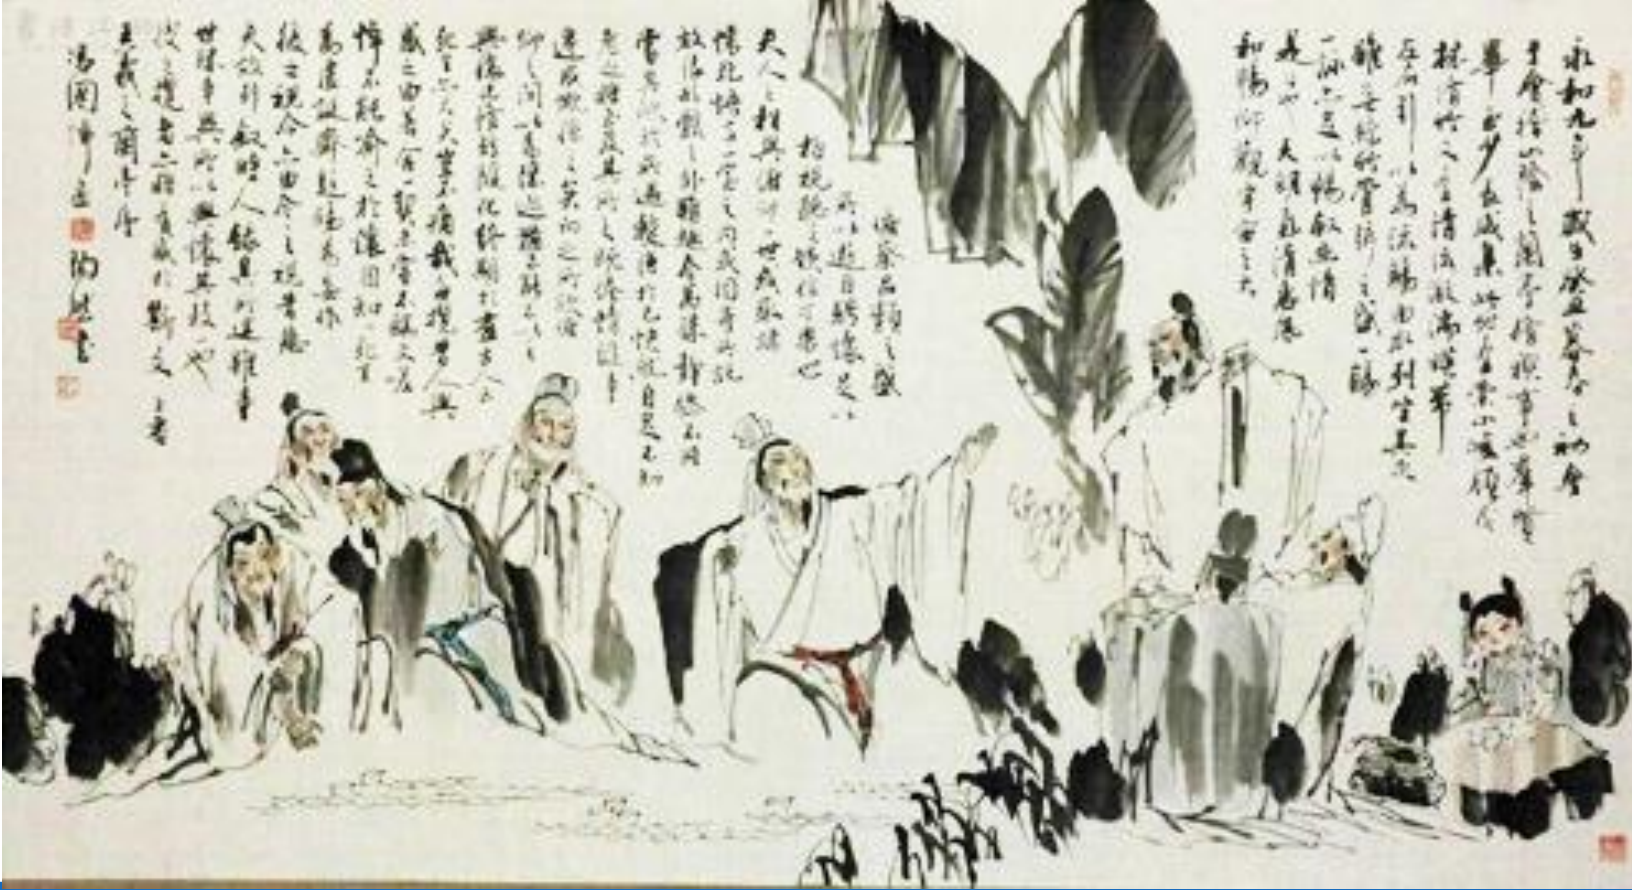 永和九年歲在癸丑暮春之初會
于會稽山陰之蘭亭脩禊事也群賢
畢至少長咸集此地有崇山峻領茂
林脩竹又有清流激湍暎帶
左右引以為流觴曲水列坐其次
雖無絲竹管弦之盛一觴
一詠亦足以暢敘幽情
是日也天朗氣清惠風
和暢仰觀宇宙之大
俯察品類之盛
所以遊目騁懷足以
極視聽之娛信可樂也
夫人之相與俯仰一世或取諸
懷抱悟言一室之內或因寄所託
放浪形骸之外雖趣舍萬殊靜躁不同
當其欣於所遇暫得於己快然自足不知
老之將至及其所之既惓情隨事
遷感慨係之矣向之所欣俛
仰之間以為陳迹猶不能不以之
興懷況脩短隨化終期於盡古人云
死生亦大矣豈不痛哉每攬昔人興
感之由若合一契未嘗不臨文嗟
悼不能喻之於懷固知一死生
為虛誕齊彭殤為妄作
後之視今亦由今之視昔悲
夫故列敘時人錄其所述雖
世殊事異所以興懷其致一也
後之攬者亦將有感於斯文
王羲之蘭亭序